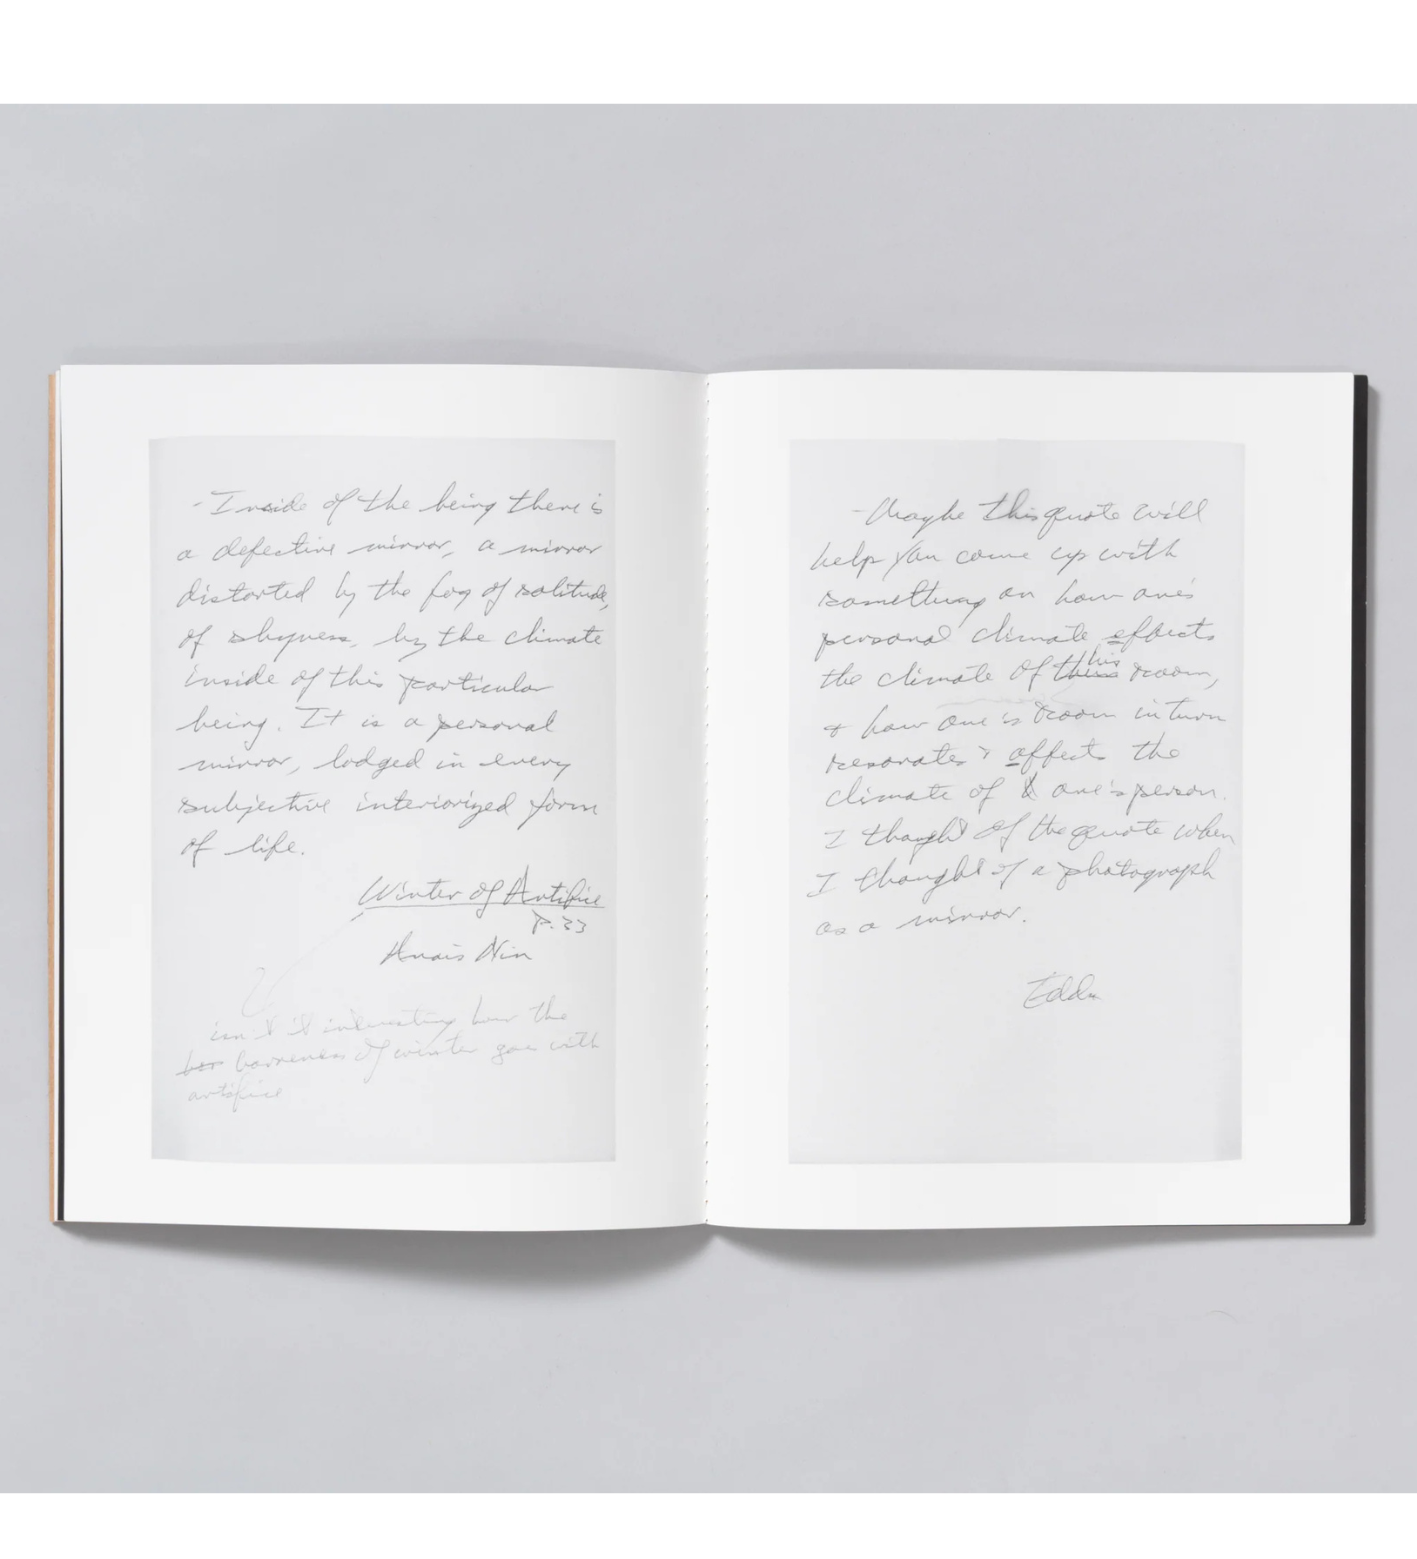 - Inside of the being there is
a defective mirror, a mirror
distorted by the fog of solitude,
of shyness, by the climate
inside of this particular
being. It is a personal
mirror, lodged in every
subjective interiorized form
of life.
Winter of Artifice
P. 33
Anais Nin
isn't it interesting how the
bar barreness of winter goes with
artifice
- Maybe this quote will
help you come up with
something on how one's
personal climate effects
his
the climate of room,
& how one's room in turn
resonates & affects the
climate of one's person.
I thought of the quote when
I thought of a photograph
as a mirror.